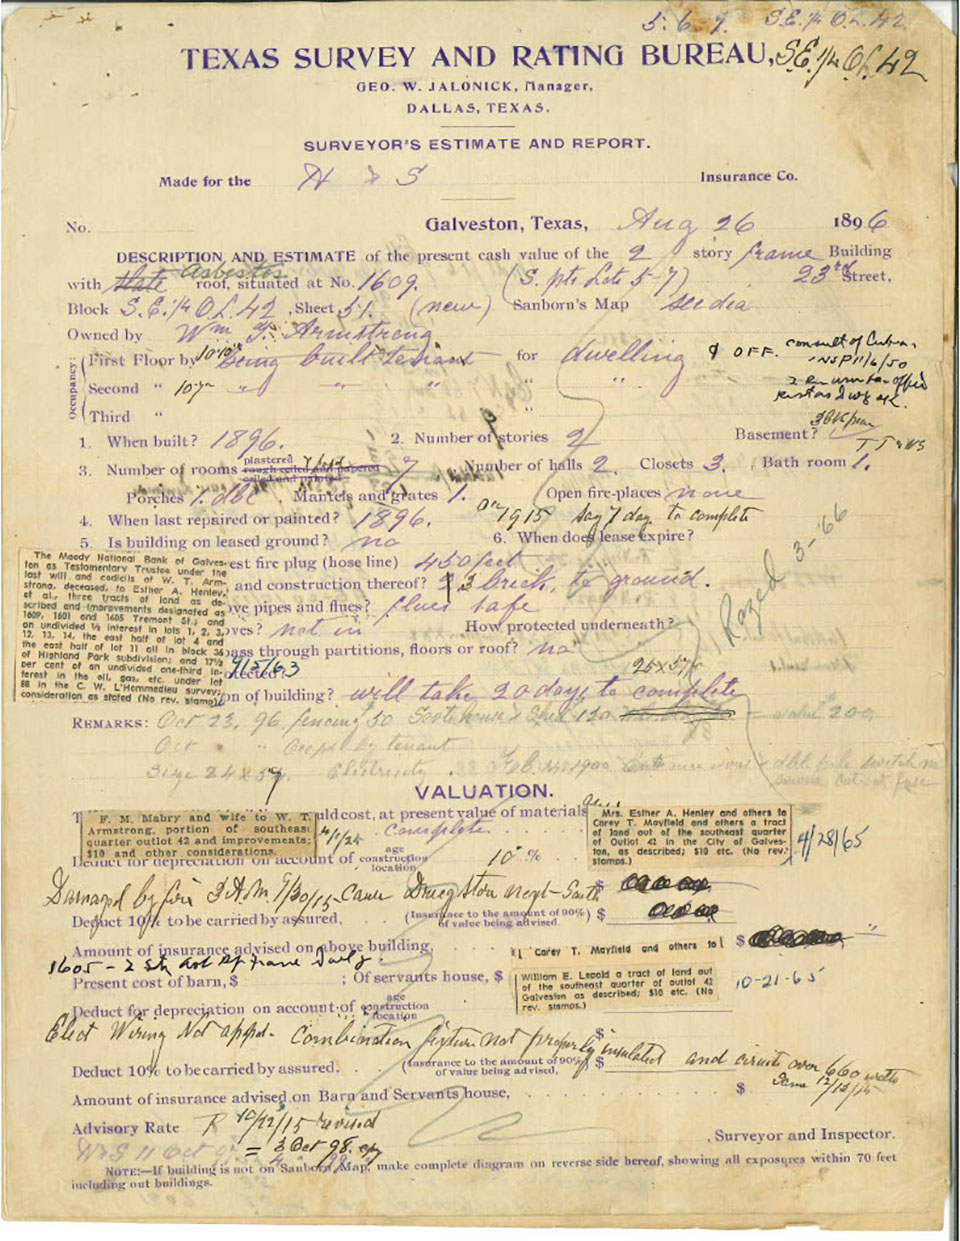 5-6-7. S.E. 1/4 O.L. 42.
TEXAS SURVEY AND RATING BUREAU, S.E. 1/4 O.L. 42
GEO. W. JALONICK, Manager,
DALLAS, TEXAS.
SURVEYOR'S ESTIMATE AND REPORT.
Made for the H & S Insurance Co.
No. Galveston, Texas, Aug 26 1896
DESCRIPTION AND ESTIMATE of the present cash value of the 2 story frame Building
with slate Asbestos roof, situated at No. 1609. (S. pts Lots 5-7) 23rd Street,
Block S.E. 1/4 O.L. 42, Sheet 51. (new) Sanborn's Map see dia
Owned by Wm T. Armstrong
Occupancy:
First Floor by being built tenant for dwelling & OFF. consult of Cuba
Second " " " " " "
Third " "
1. When built? 1896. 2. Number of stories 2 Basement?
3. Number of rooms plastered rough ceiled and papered ceiled and painted 7 Number of halls 2. Closets 3. Bath room 1.
Porches 1. dbl. Mantels and grates 1. Open fire-places none
4. When last repaired or painted? 1896. on 1915 say 7 day to complete
5. Is building on leased ground? no 6. When does lease expire?
The Moody National Bank of Galves-
ton as Testamentary Trustee under the
last will and codicils of W. T. Arm-
strong, deceased, to Esther A. Henley,
et al., three tracts of land as de-
scribed and improvements designated as
1609, 1601 and 1605 Tremont St.; and
an undivided ½ interest in lots 1, 2, 3,
12, 13, 14, the east half of lot 4 and
the east half of lot 11 all in block 36
of Highland Park subdivision; and 17½
per cent of an undivided one-third in-
terest in the oil, gas, etc. under lot
88 in the C. W. L'Hommedieu survey;
consideration as stated (No rev. stamps)
est fire plug (hose line) 450 feet
and construction thereof? 3 brick to ground.
ove pipes and flues? flues safe
oves? not in How protected underneath?
pass through partitions, floors or roof? no
otected?
on of building? will take 20 days to complete
25 x 57
Razed 3-66
REMARKS: Oct 23, 96. fencing 50
Oct " Occpd by tenant
Size 24 x 57. Electricity
VALUATION.
F. M. Mabry and wife to W. T.
Armstrong, portion of southeast
quarter outlot 42 and improvements;
$10 and other considerations.
uld cost, at present value of materials
complete
Mrs. Esther A. Henley and others to
Carey T. Mayfield and others a tract
of land out of the southeast quarter
of Outlot 42 in the City of Galves-
ton, as described; $10 etc. (No rev.
stamps.)
4/28/65
Deduct for depreciation on account of age construction location 10 %
Damaged by fire 3 A.M. 9/30/15 Cause
Deduct 10% to be carried by assured, (Insurance to the amount of 90%) of value being advised $
Amount of insurance advised on above building, $
Carey T. Mayfield and others to
William E. Lepold a tract of land out
of the southeast quarter of outlot 42
Galveston as described; $10 etc. (No
rev. stamps.)
10-21-65
Present cost of barn, $ ; Of servants house, $
Deduct for depreciation on account of age construction location
Elect Wiring Not appd. Combination fixture not properly insulated and circuit over 660 watts
Same 12/13/15
Deduct 10% to be carried by assured, (Insurance to the amount of 90%) of value being advised, $
Amount of insurance advised on Barn and Servants house, $
Advisory Rate R 10/22/15 revised
= 3 Oct 98.
, Surveyor and Inspector.
NOTE:—If building is not on Sanborn Map, make complete diagram on reverse side hereof, showing all exposures within 70 feet
including out buildings.